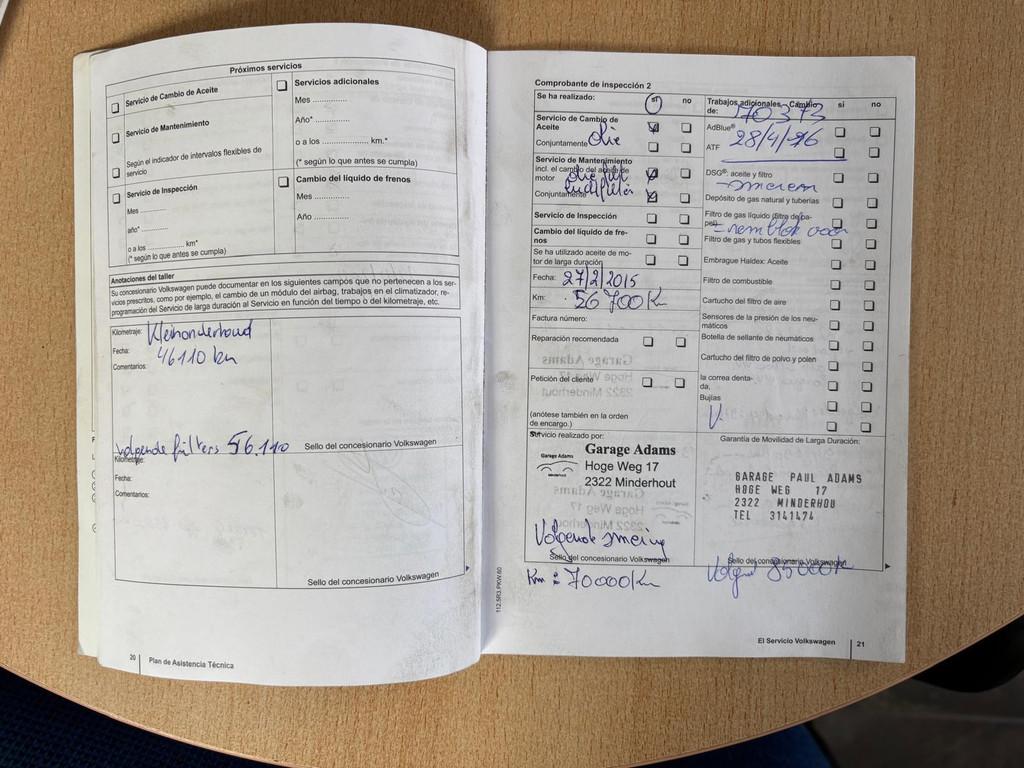 Próximos servicios
Servicio de Cambio de Aceite
Servicio de Mantenimiento
Según el indicador de intervalos flexibles de
servicio
Servicio de Inspección
Mes .........
año* .........
o a los .................. km*
(* según lo que antes se cumpla)
Servicios adicionales
Mes ............
Año* ............
o a los ................ km.*
(* según lo que antes se cumpla)
Cambio del líquido de frenos
Mes ............
Año ............
Anotaciones del taller
Su concesionario Volkswagen puede documentar en los siguientes campos que no pertenecen a los ser-
vicios prescritos, como por ejemplo, el cambio de un módulo del airbag, trabajos en el climatizador, re-
programación del Servicio de larga duración al Servicio en función del tiempo o del kilometraje, etc.
Kilometraje:
Fecha: 46110 km
Comentarios:
Volgende filters 56.110
Sello del concesionario Volkswagen
Kilometraje:
Fecha:
Comentarios:
Sello del concesionario Volkswagen
20 Plan de Asistencia Técnica
112.5R3.PKW.60
Comprobante de inspección 2
Se ha realizado: sí no
Servicio de Cambio de
Aceite
Conjuntamente olie
Servicio de Mantenimiento
incl. el cambio del aceite de
motor
Conjuntamente
Servicio de Inspección
Cambio del líquido de fre-
nos
Se ha utilizado aceite de mo-
tor de larga duración
Fecha: 27/2/2015
Km: 56700 Km
Factura número:
Reparación recomendada
Petición del cliente
(anótese también en la orden
de encargo.)
Servicio realizado por:
Garage Adams
Garage Adams
Hoge Weg 17
2322 Minderhout
Volgende smering
Sello del concesionario Volkswagen
Km : 70000 Km
Trabajos adicionales - Cambio sí no
de: 70373
AdBlue®
28/4/-16
ATF
DSG®: aceite y filtro
Depósito de gas natural y tuberías
Filtro de gas líquido (filtro de pa-
pel)
Filtro de gas y tubos flexibles
Embrague Haldex: Aceite
Filtro de combustible
Cartucho del filtro de aire
Sensores de la presión de los neu-
máticos
Botella de sellante de neumáticos
Cartucho del filtro de polvo y polen
la correa denta-
da,
Bujías
Garantía de Movilidad de Larga Duración:
GARAGE PAUL ADAMS
HOGE WEG 17
2322 MINDERHOU
TEL 3141474
Sello del concesionario Volkswagen
85000 K
El Servicio Volkswagen 21